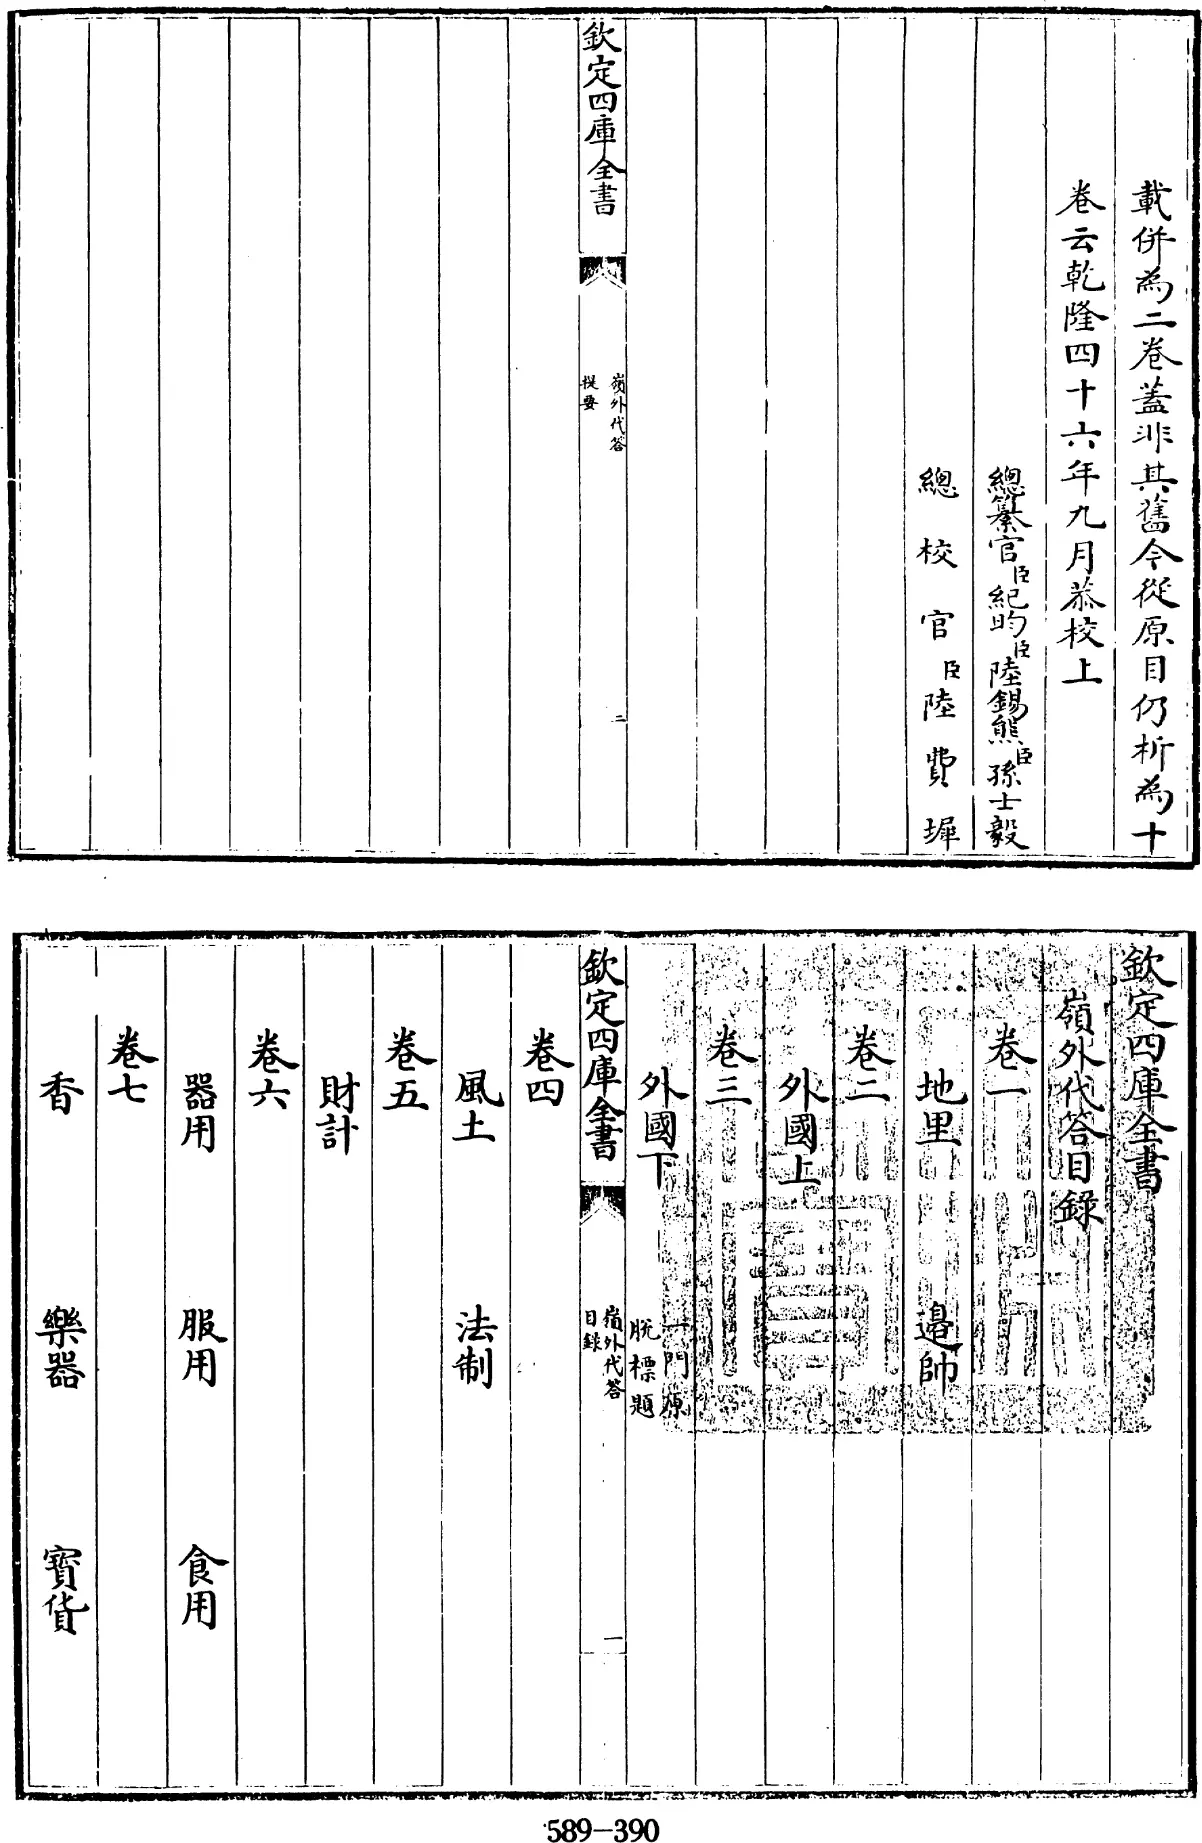 載併為二卷蓋非其舊今從原目仍析為十
卷云乾隆四十六年九月恭校上
總纂官臣紀昀臣陸錫熊臣孫士毅
總校官臣陸費墀
欽定四庫全書
嶺外代答
提要
二
欽定四庫全書
嶺外代答目錄
卷一
地里 邉帥
卷二
外國上
卷三
外國下 一門原脫標題
欽定四庫全書
嶺外代答
目錄
一
卷四
風土 法制
卷五
財計
卷六
器用 服用 食用
卷七
香 樂器 寶貨
589-390